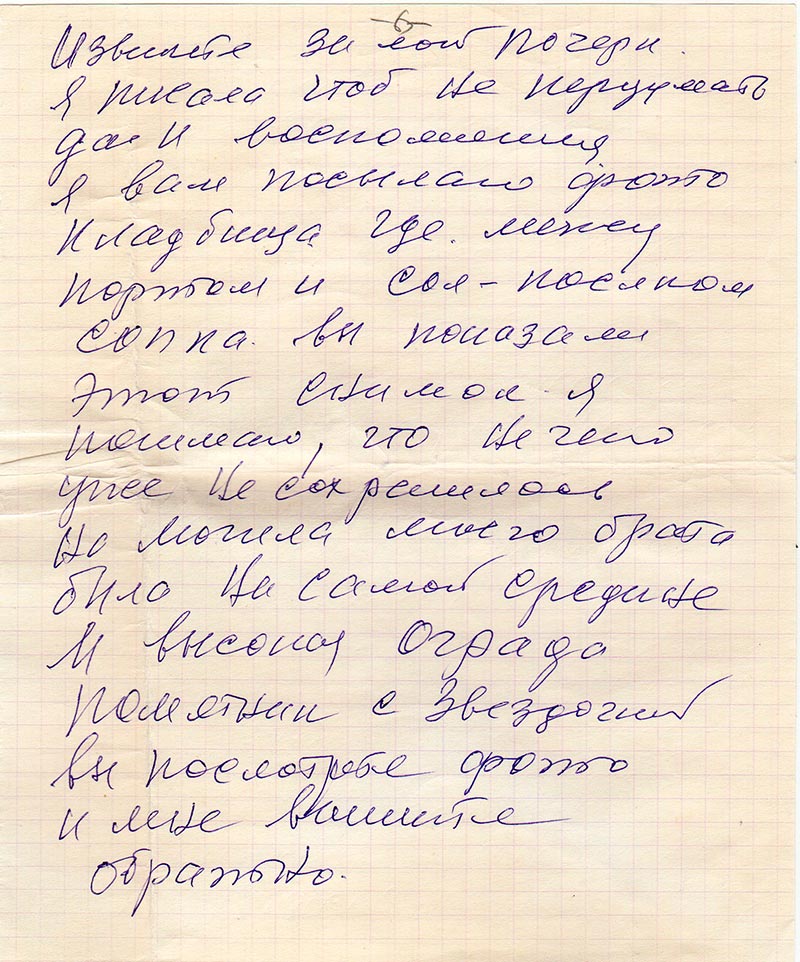 -6-
Извините за мой почерк.
Я писала чтоб не
да и воспоменния
я вам посылаю фото
кладбища где. между
портом и сол-посёлком
сопка. вы показали
этот снимок. я
понимаю, что не чего
уже не сохренилось
но могила моего брата
била на самой средине
и высокая ограда
помятник с звездочкий
вы посмотрете фото
и мне вышите
обратно.